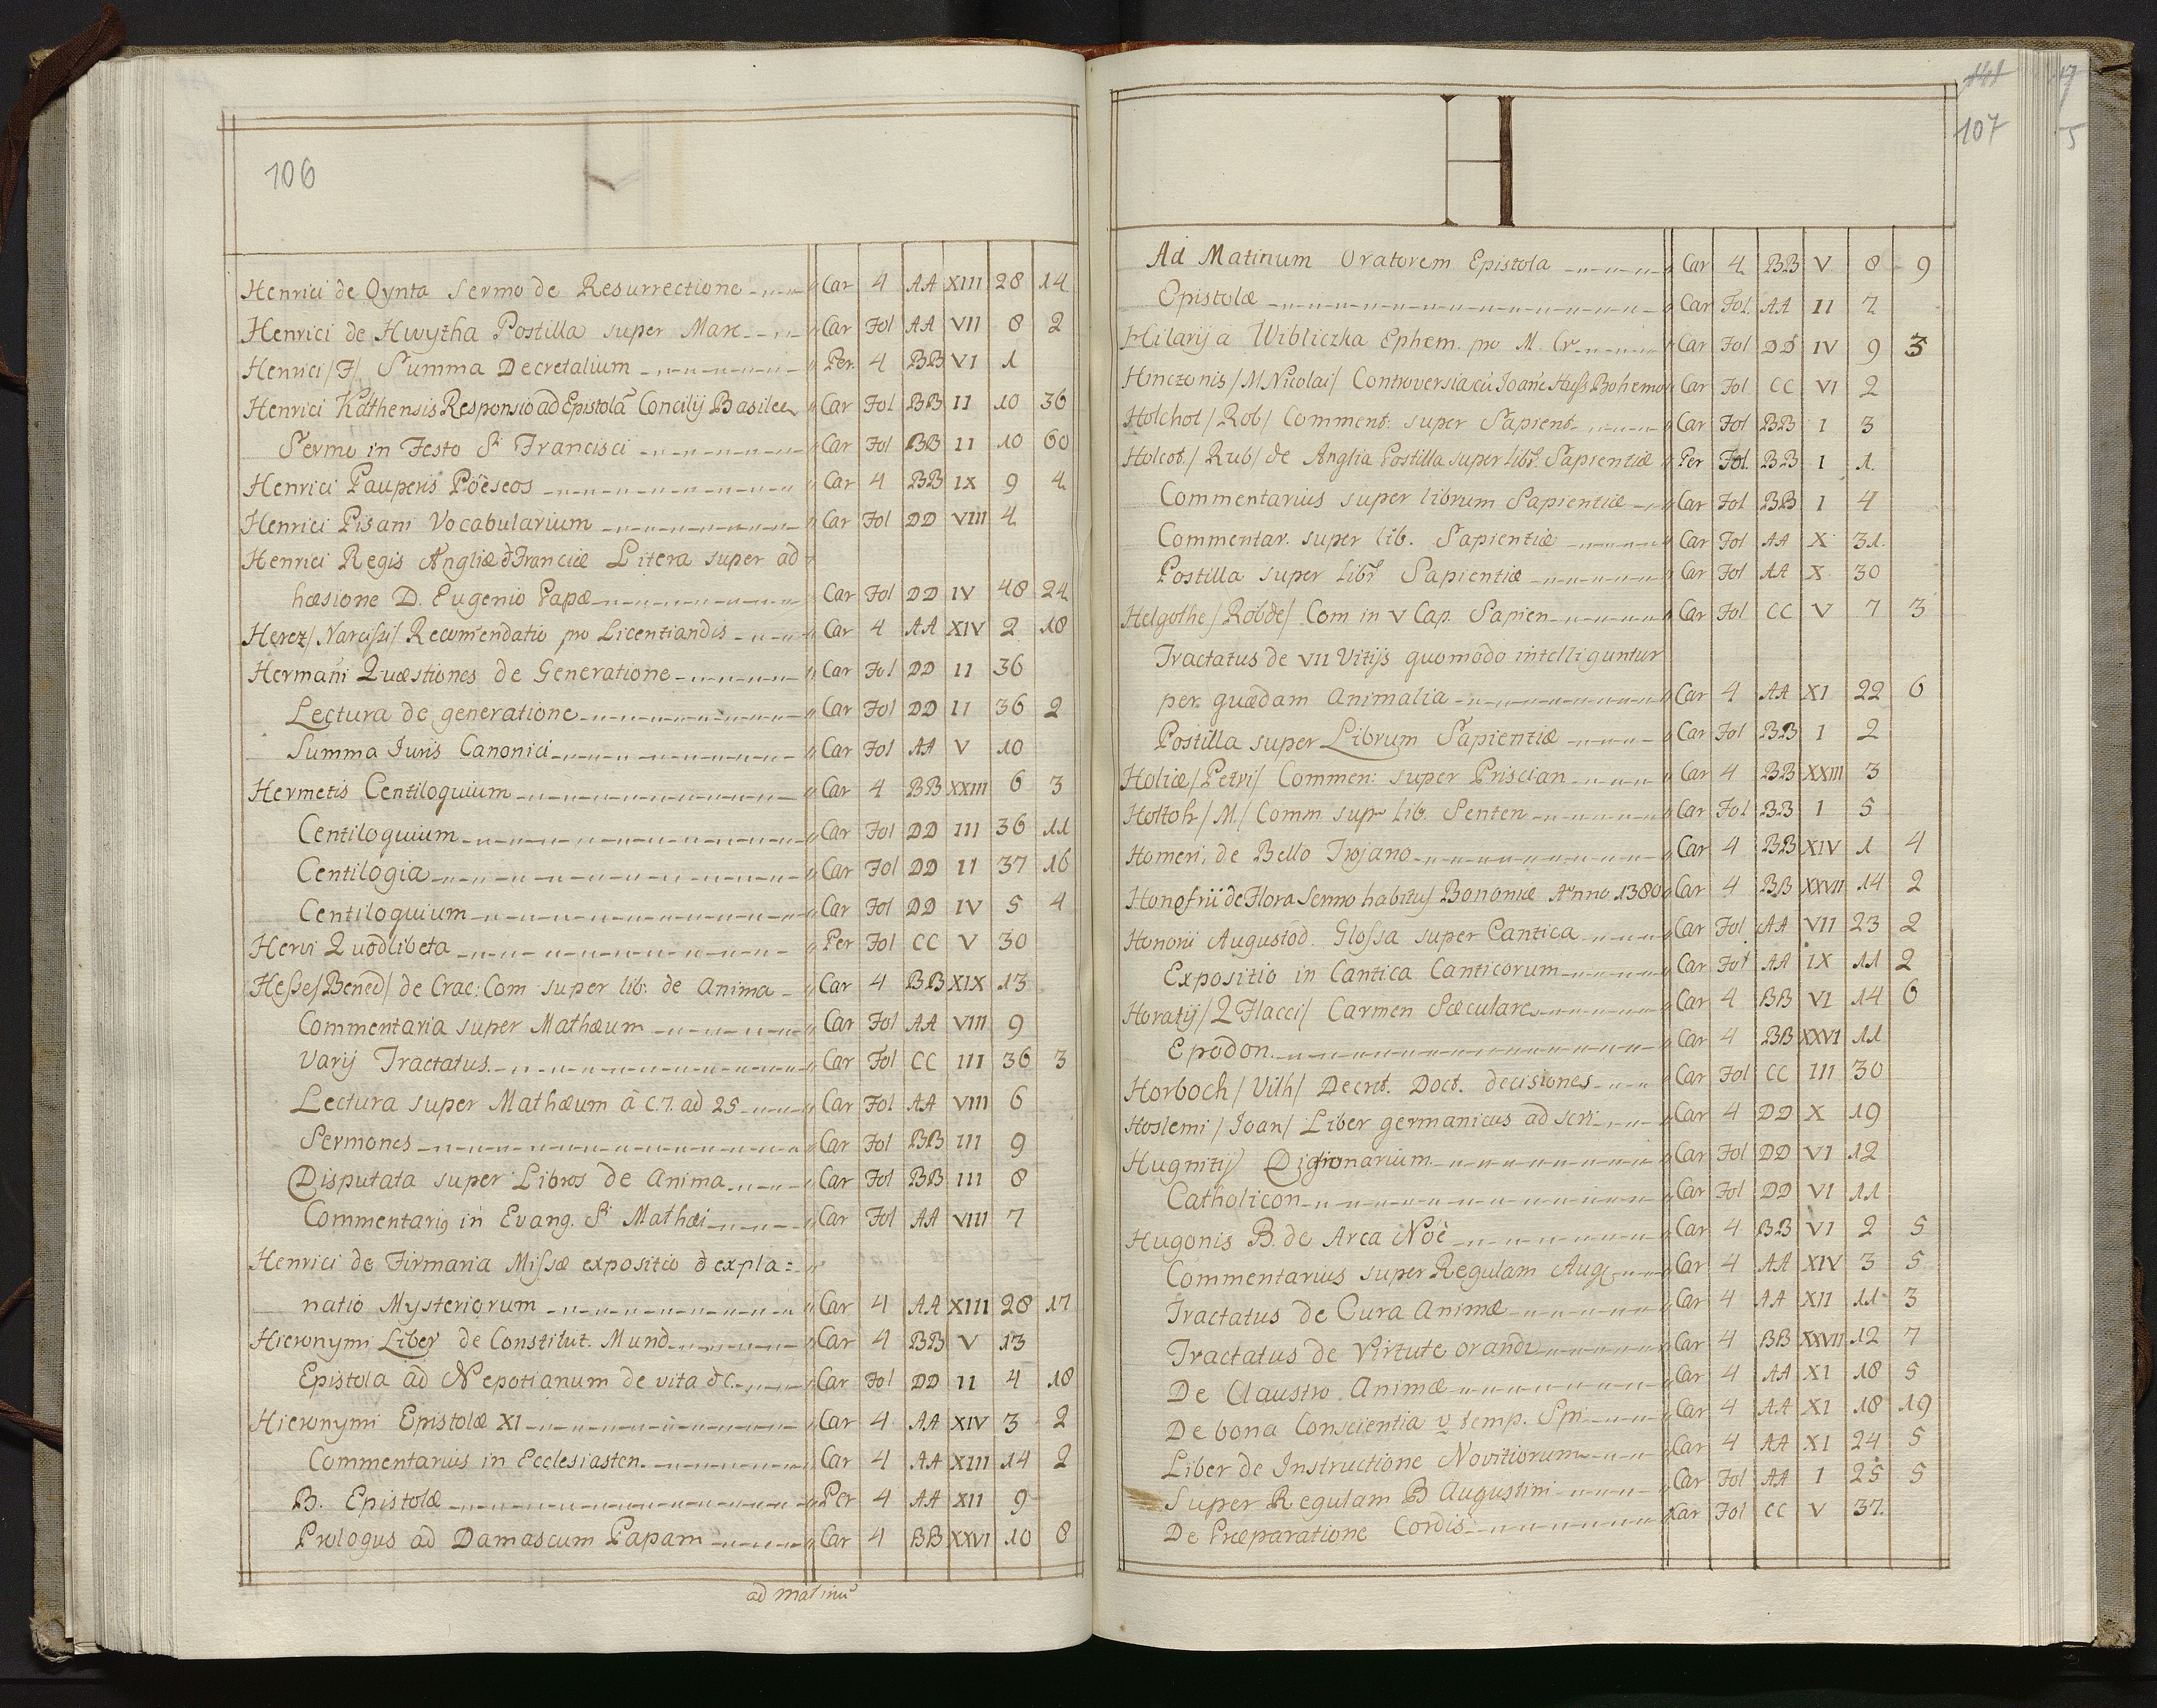 106
H
Henrici de Oynta Sermo de Resurrectione Car 4 AA XIII 28 14
Henrici de Hwytha Postilla super Marc Car Fol AA VII 8 2
Henrici /F/ Summa Decretalium Per. 4 BB VI 1
Henrici Kathensis Responsio ad Epistolã Concilij Basileen Car Fol BB II 10 36
Sermo in Festo Sⁱ Francisci Car Fol BB II 10 60
Henrici Pauperis Pöeseos Car 4 BB IX 9 4
Henrici Pisani Vocabularium Car Fol DD VIII 4
Henrici Regis Angliæ & Franciæ Litera super ad
hæsione D. Eugenio Papæ Car Fol DD IV 48 24
Herez /Narcissi/ Recom̃endatio pro Licentiandis Car 4 AA XIV 2 18
Herman̄i Quæstiones de Generatione Car Fol DD II 36
Lectura de generatione Car Fol DD II 36 2
Summa Iuris Canonici Car Fol AA V 10
Hermetis Centiloquium Car 4 BB XXIII 6 3
Centiloquium Car Fol DD III 36 11
Centilogia Car Fol DD II 37 16
Centiloquium Car Fol DD IV 5 4
Hervi Quodlibeta Per Fol CC V 30
Hesse /Bened/ de Crac: Com super lib: de Anima Car 4 BB XIX 13
Commentaria super Mathæum Car Fol AA VIII 9
Varij Tractatus Car Fol CC III 36 3
Lectura super Mathæum à C.7. ad 25 Car Fol AA VIII 6
Sermones Car Fol BB III 9
Disputata super Libros de Anima Car Fol BB III 8
Commentari9 in Evang. Sⁱ Mathæi Car Fol AA VIII 7
Henrici de Firmaria Missæ expositio & expla=
natio Mysteriorum Car 4 AA XIII 28 17
Hieronymi Liber de Constitut. Mund Car 4 BB V 13
Epistola ad Nepotianum de vita &c. Car Fol DD II 4 18
Hieronymi Epistolæ XI Car 4 AA XIV 3 2
Commentarius in Ecclesiasten. Car 4 AA XIII 14 2
B. Epistolæ Per 4 AA XII 9
Prologus ad Damascum Papam Car 4 BB XXVI 10 8
ad Matinũ
141
107
17
5
H
Ad Matinum Oratorem Epistola Car 4 BB V 8 9
Epistolæ Car Fol. AA II 7
Hilarij a Wibliczka Ephem. pro M. Cr Car Fol DD IV 9 3
Hinczonis /M Nicolai/ Controversia cũ Ioan̄e Huss Bohemo Car Fol CC VI 2
Holchot /Rob/ Comment: super Sapient Car Fol BB I 3
Holcot. /Rub/ de Anglia Postilla super Libr. Sapientiæ Per Fol. BB I 1.
Commentarius super librum Sapientiæ Car Fol BB I 4
Commentar. super lib. Sapientiæ Car Fol AA X 31.
Postilla super Libr Sapientiæ Car Fol AA X 30
Helgothe /Rob de/ Com in V Cap. Sapien Car Fol CC V 7 3
Tractatus de VII Vitijs quomodo intelliguntur
per quædam Animalia Car 4 AA XI 22 6
Postilla super Librum Sapientiæ Car Fol BB I 2
Holiæ /Petri/ Commen: super Priscian Car 4 BB XXIII 3
Holtoh /M./ Comm. supr Lib. Senten Car Fol BB I 5
Homeri, de Bello Trojano Car 4 BB XIV 1 4
Honofrii de Flora Sermo habitus Bononiæ Anno 1380 Car 4 BB XXVII 14 2
Honorii Augustod. Glossa super Cantica Car Fol AA VII 23 2
Expositio in Cantica Canticorum Car Fol AA IX 11 2
Horatij /Q Flacci/ Carmen Sæculare Car 4 BB VI 14 6
Epodon. Car 4 BB XXVI 11
Horboch /Vilh/ Decret. Doct. decisiones Car Fol CC III 30
Hoslemi /Ioan/ Liber germanicus ad scri Car 4 DD X 19
Hugnitij Digionarium Car Fol DD VI 12
Catholicon Car Fol DD VI 11
Hugonis B. de Arca Nöe Car 4 BB VI 2 5
Commentarius super Regulam Aug Car 4 AA XIV 3 5
Tractatus de Cura Animæ Car 4 AA XII 11 3
Tractatus de Virtute orandi Car 4 BB XXVII 12 7
De Claustro Animæ Car 4 AA XI 18 5
De bona Conscientia v temp. Spi Car 4 AA XI 18 19
Liber de Instructione Novitiorum Car 4 AA XI 24 5
Super Regulam B Augustini Car Fol AA I 25 5
De Præparatione Cordis Car Fol CC V 37.